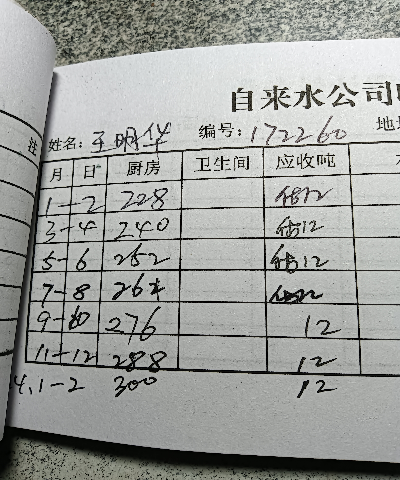 自来水公司
姓名: 王明华 编号: 172260 地
月 日 厨房 卫生间 应收吨
1-2 228 估12
3-4 240 估12
5-6 252 估12
7-8 264 估12
9-10 276 12
11-12 288 12
4.1-2 300 12